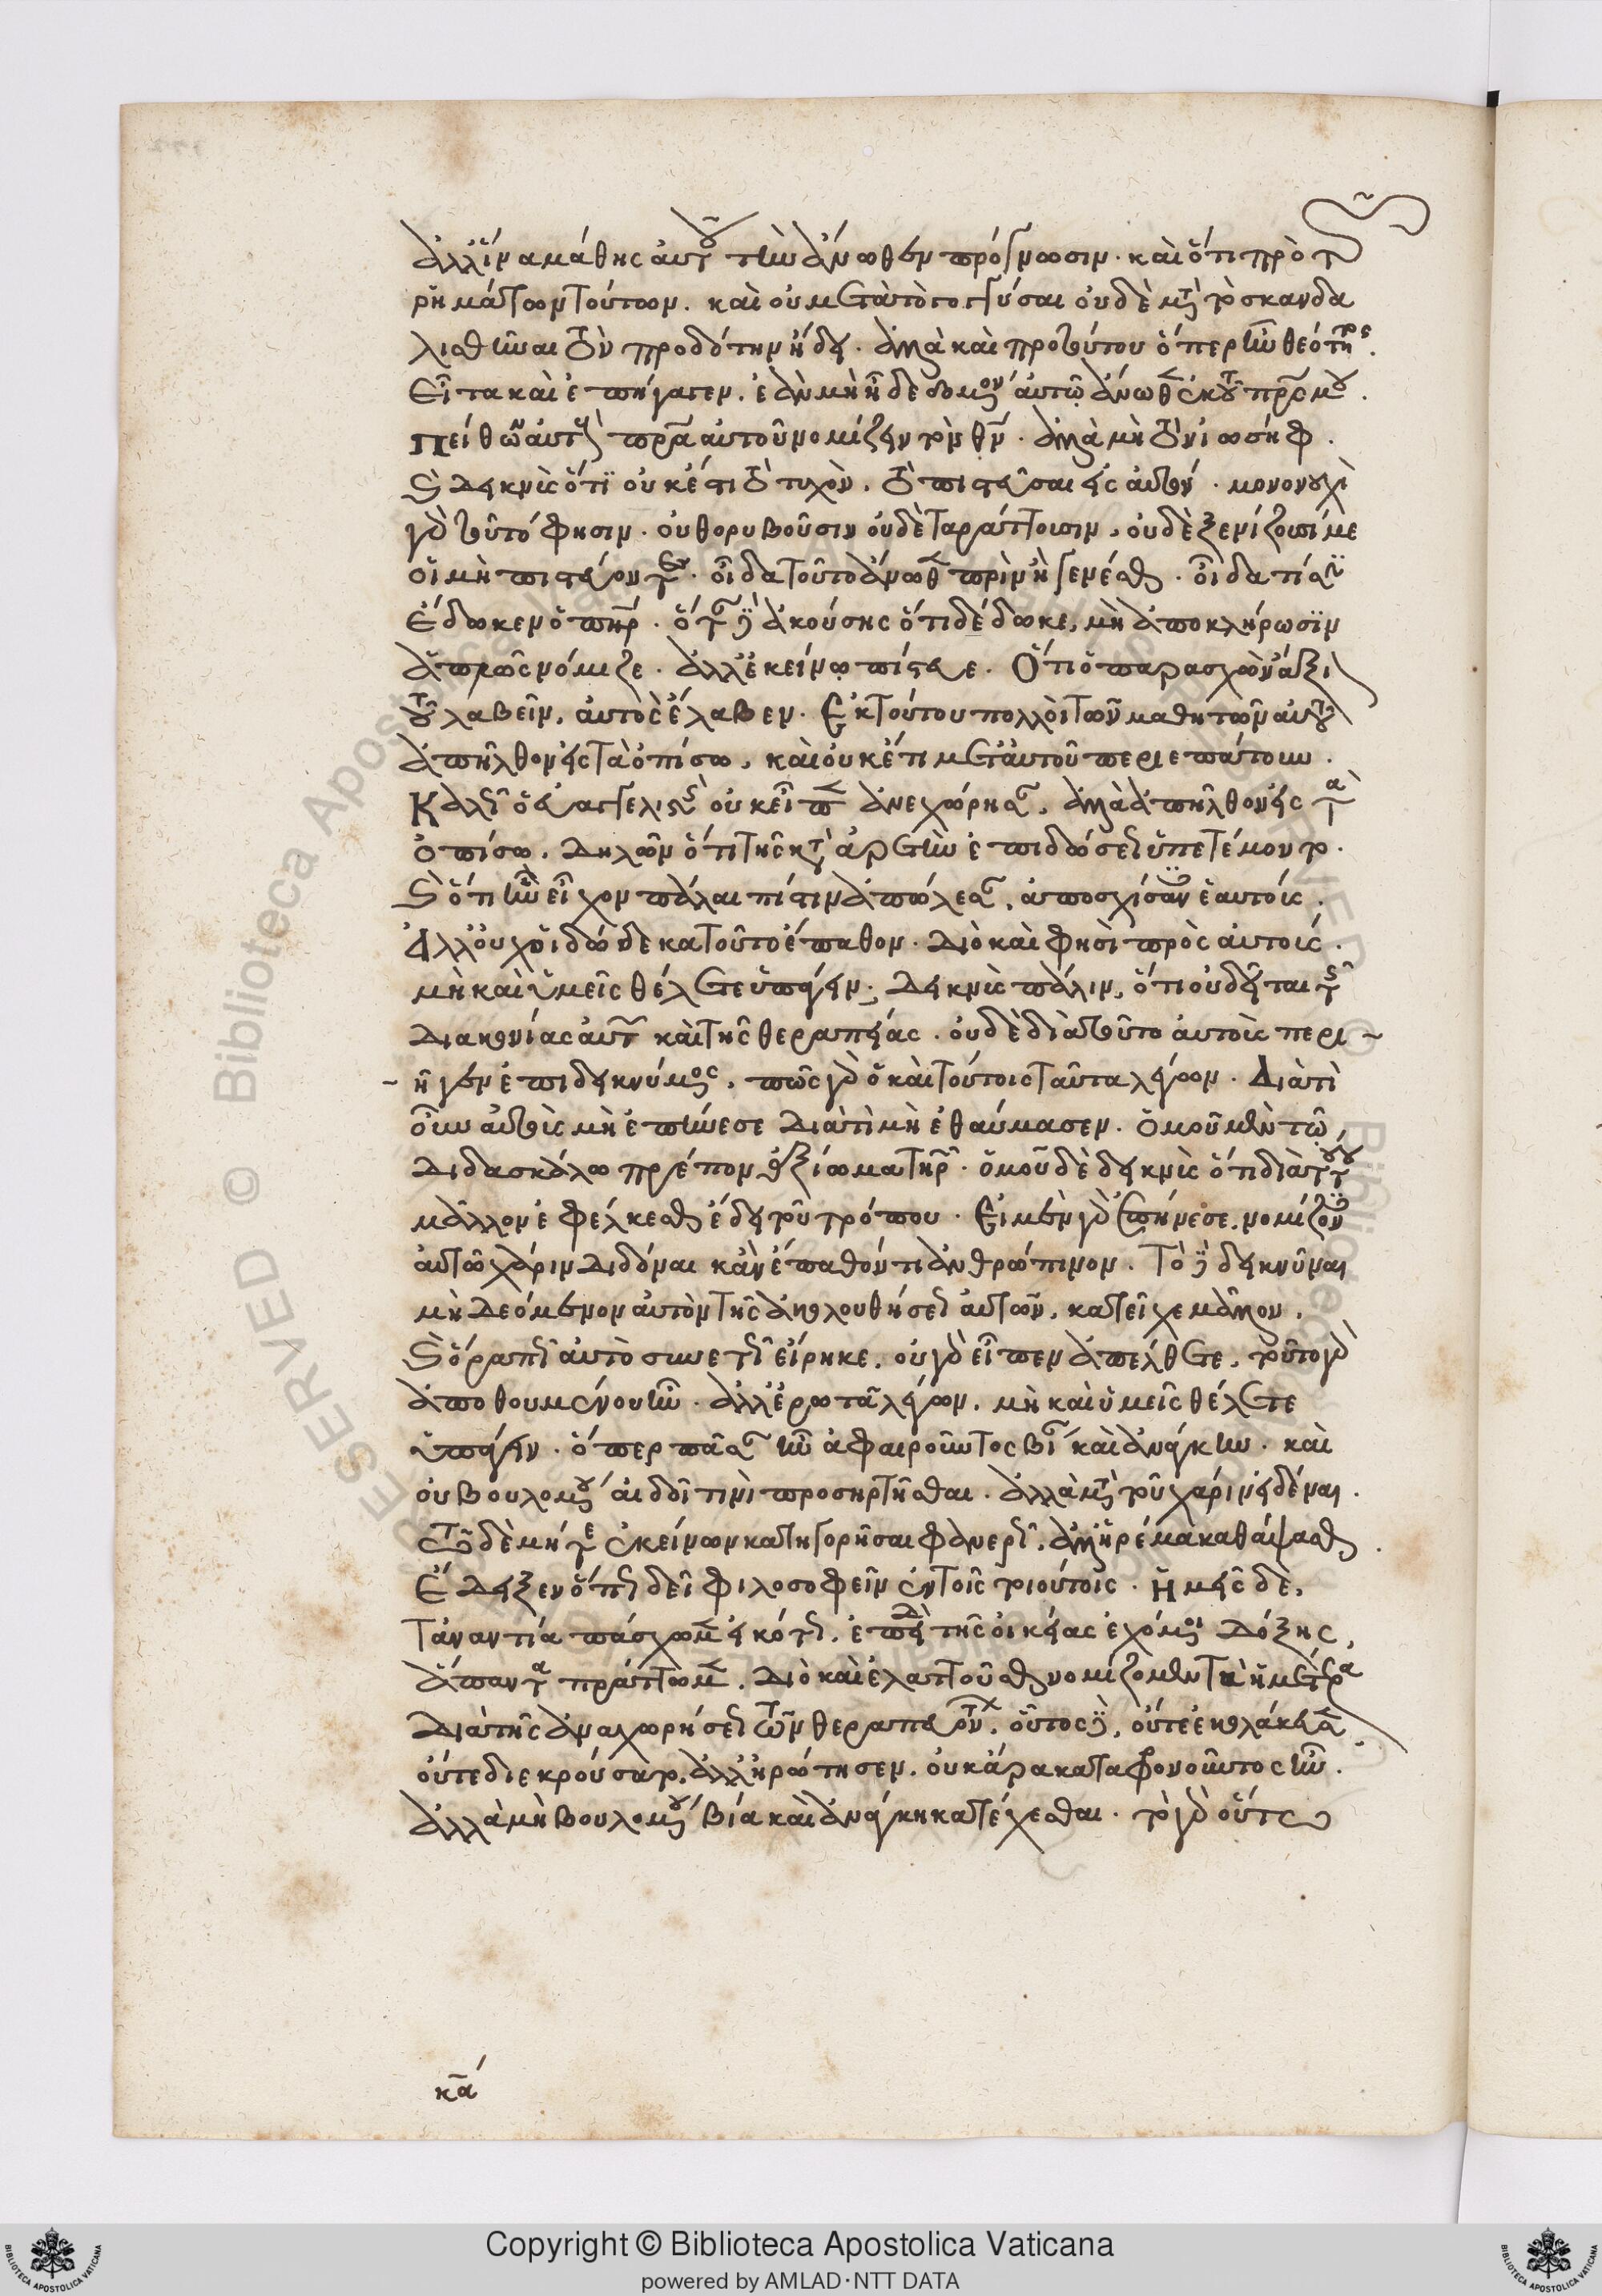 ἀλλ' ἵνα μάθης αὐτοῦ τὴν ἄνωθεν πρόγνωσιν. καὶ ὅτι πρὸ τῶν
ρημάτων τούτων. καὶ οὐ μετὰ τὸ γογγύσαι οὐδὲ μετὰ τὸ σκανδα
λισθῆναι τὸν προδότην ἤδει. ἀλλὰ καὶ πρὸ τούτου ὅπερ ἦν θεότητος.
Εἶτα καὶ ἐπήγαγεν. ἐὰν μὴ ἦ δεδομένον αὐτῶ ἄνωθεν ἐκ τοῦ πατρός μου.
πείθων αὐτοὺς πατέρα αὐτοῦ νομίζειν τὸν θεόν. ἀλλὰ μὴ τὸν ἰωσήφ.
καὶ δεικνὺς ὅτι οὐκ ἔστι τὸ τυχὸν. τὸ πιστεῦσαι εἰς αὐτόν. μονονουχὶ
γὰρ τοῦτό φησιν. οὐ θορυβοῦσιν οὐδὲ ταράττουσιν, οὐδὲ ξενίζουσί με
οἱ μὴ πιστεύοντες. οἶδα τοῦτο ἄνωθεν πρὶν ἢ γενέσθαι. οἶδα τίσιν
ἔδωκεν ὁ πατήρ. ὅταν δὲ ἀκούσης ὅτι δέδωκε, μὴ ἀποκλήρωσιν
ἁπλῶς νόμιζε. ἀλλ' ἐκείνω πίστευε. Ὅτι ὁ παρασχὼν ἄξιον
τοῦ λαβεῖν, αὐτὸς ἔλαβεν. Ἐκ τούτου πολλοὶ τῶν μαθητῶν αὐτοῦ
ἀπῆλθον εἰς τὰ ὀπίσω, καὶ οὐκέτι μετ' αὐτοῦ περιεπάτουν.
Καλῶς ὁ εὐαγγελιστὴς οὐκ εἶπεν ἀνεχώρησαν, ἀλλὰ ἀπῆλθον εἰς τὰ
ὀπίσω. δηλῶν ὅτι τῆς κατὰ ἀρετὴν ἐπιδόσεως ὑπετέμοντο.
καὶ ὅτι ἣν εἶχον πάλαι πίστιν ἀπώλεσαν, ἀποσχίσαντες ἑαυτούς.
Ἀλλ' οὐχ οἱ δώδεκα τοῦτο ἔπαθον. Διὸ καὶ φησὶ πρὸς αὐτούς.
μὴ καὶ ὑμεῖς θέλετε ὑπάγειν; δεικνὺς πάλιν, ὅτι οὐ δεῖται τῆς
διακονίας αὐτῶν καὶ τῆς θεραπείας. οὐδὲ διὰ τοῦτο αὐτοὺς περι
ῆγεν ἐπιδεικνύμενος. πῶς γὰρ ὁ καὶ τούτοις ταῦτα λέγων. Διὰ τί
οὖν αὐτοὺς μὴ ἐπήνεσε διὰ τί μὴ ἐθαύμασεν. Ὁμοῦ μὲν τῶ
διδασκάλω πρέπον ἀξίωμα τηρῶν. ὁμοῦ δὲ δεικνὺς ὅτι διὰ τούτου
μᾶλλον ἐφέλκεσθαι ἔδει τοῦ τρόπου. Εἰ μὲν γὰρ ἐπήνεσε. νομίζοντες
αὐτῶ χάριν διδόναι κἂν ἔπαθόν τι ἀνθρώπινον. Τὸ δὲ δεικνῦναι
μὴ δεόμενον αὐτὸν τῆς ἀκολουθήσεως αὐτῶν, κατεῖχε μᾶλλον.
καὶ ὅρα πῶς αὐτὸ συνετῶς εἴρηκε. οὐ γὰρ εἶπεν ἀπέλθετε. τοῦτο γὰρ
ἀποθουμένου ἦν. ἀλλ' ἐρωτᾶ λέγων, μὴ καὶ ὑμεῖς θέλετε
ὑπάγειν. ὅπερ πᾶσαν ἦν ἀφαιροῦντος βίαν καὶ ἀνάγκην. καὶ
οὐ βουλομένου αἰδοῖ τινὶ προσηρτῆσθαι. ἀλλὰ μετὰ τοῦ χάριν εἰδέναι.
τῶ δὲ μήτε ἐκείνων κατηγορῆσαι φανερῶς, ἀλλ' ἠρέμα καθάψασθαι.
ἔδειξεν ὅπως δεῖ φιλοσοφεῖν ἐν τοῖς τοιούτοις. Ἡμεῖς δὲ,
τἀναντία πάσχομεν εἰκότως. ἐπειδὴ τῆς οἰκείας ἐχόμενοι δόξης,
ἅπαντα πράττομεν. Διὸ καὶ ἐλαττοῦσθαι νομίζομεν τὰ ἡμέτερα
διὰ τῆς ἀναχωρήσεως τῶν θεραπευόντων. οὗτος δὲ, οὔτε ἐκολάκευσεν
οὔτε διεκρούσατο, ἀλλ' ἠρώτησεν. οὐκ ἄρα καταφρονοῦντος ἦν.
ἀλλὰ μὴ βουλομένου βία καὶ ἀνάγκη κατέχεσθαι. τὸ γὰρ οὕτω
κα